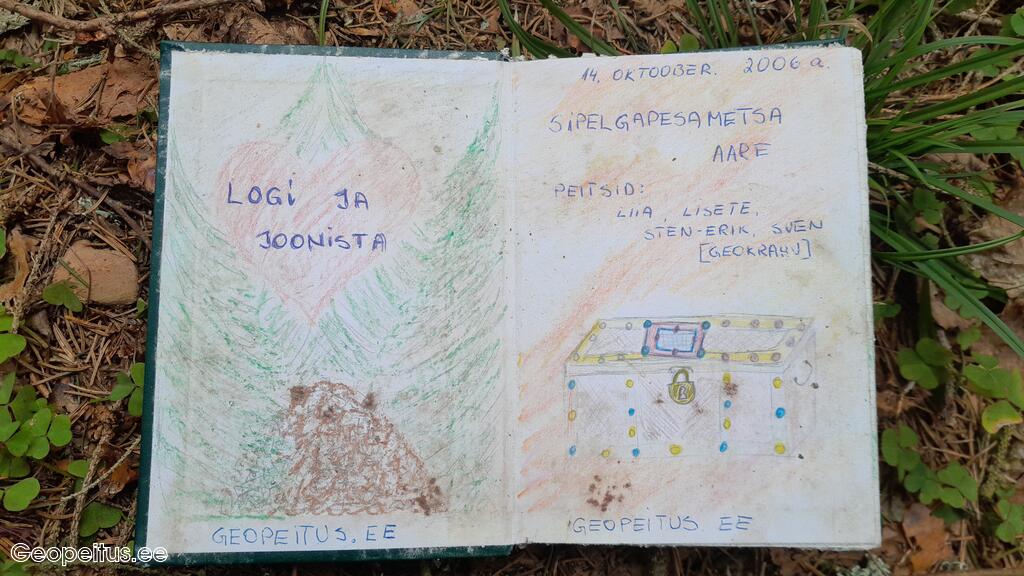 LOGI JA
JOONISTA
GEOPEITUS.EE
14. OKTOOBER. 2006 a.
SIPELGAPESAMETSA
AARE
PEITSID:
LIIA, LISETE,
STEN-ERIK, SVEN
[GEOKRAHV]
GEOPEITUS EE
Geopeitus.ee